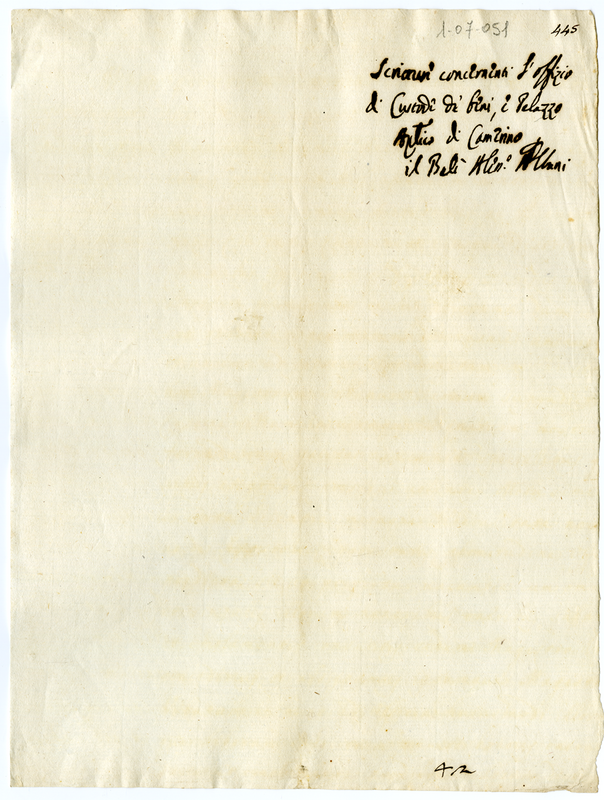 1-07-051
445
Scritture concernenti l'offizio
di Custode de beni, e Palazzo
Aptico di Camerino
il Bali Aless.o